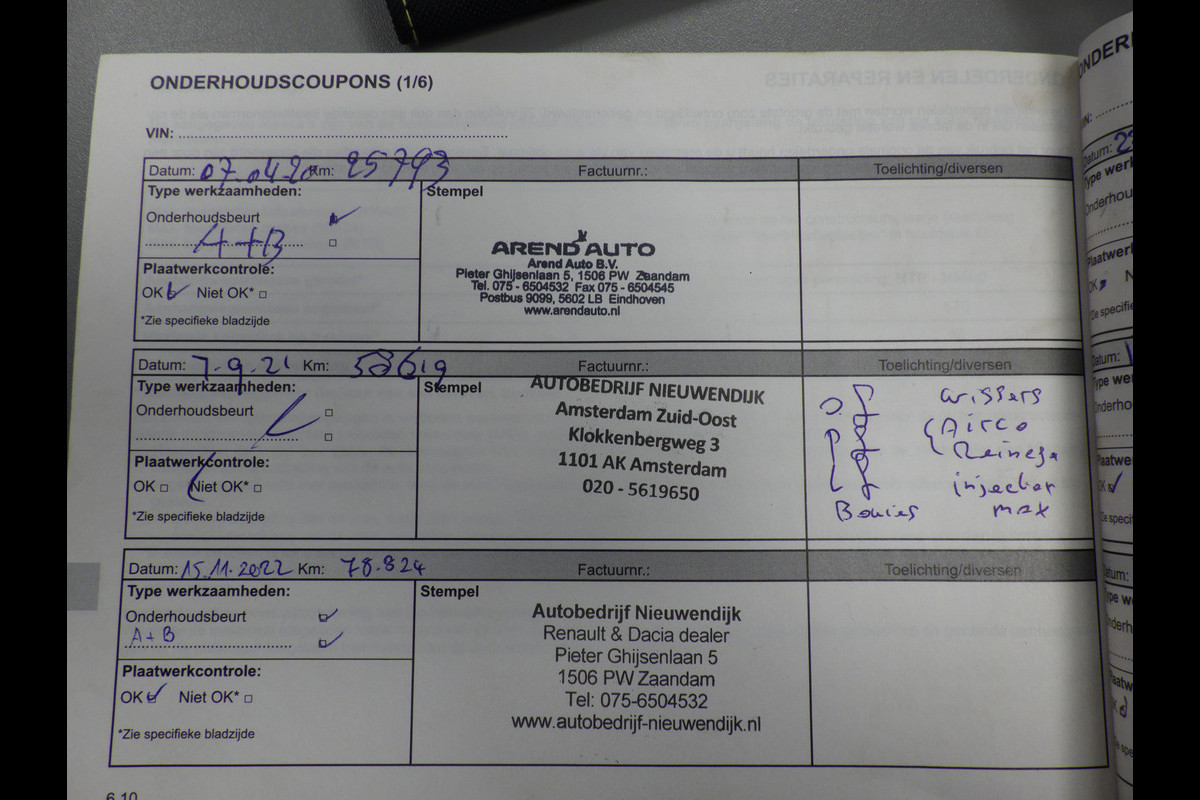 ONDERHOUDSCOUPONS (1/6)
VIN:
Datum: 07-04-20 Km: 25793 Factuurnr.: Toelichting/diversen
Type werkzaamheden: Stempel
Onderhoudsbeurt
A+B
Plaatwerkcontrole:
OK Niet OK*
*Zie specifieke bladzijde
AREND AUTO
Arend Auto B.V.
Pieter Ghijsenlaan 5, 1506 PW Zaandam
Tel. 075 - 6504532 Fax 075 - 6504545
Postbus 9099, 5602 LB Eindhoven
www.arendauto.nl
Datum: 7.9.21 Km: 58619 Factuurnr.: Toelichting/diversen
Type werkzaamheden: Stempel
Onderhoudsbeurt
Plaatwerkcontrole:
OK Niet OK*
*Zie specifieke bladzijde
AUTOBEDRIJF NIEUWENDIJK
Amsterdam Zuid-Oost
Klokkenbergweg 3
1101 AK Amsterdam
020 - 5619650
wissers
Airco
Reinega
injector
Bouies max
Datum: 15.11.2022 Km: 78.824 Factuurnr.: Toelichting/diversen
Type werkzaamheden: Stempel
Onderhoudsbeurt
A+B
Plaatwerkcontrole:
OK Niet OK*
*Zie specifieke bladzijde
Autobedrijf Nieuwendijk
Renault & Dacia dealer
Pieter Ghijsenlaan 5
1506 PW Zaandam
Tel: 075-6504532
www.autobedrijf-nieuwendijk.nl
6.10